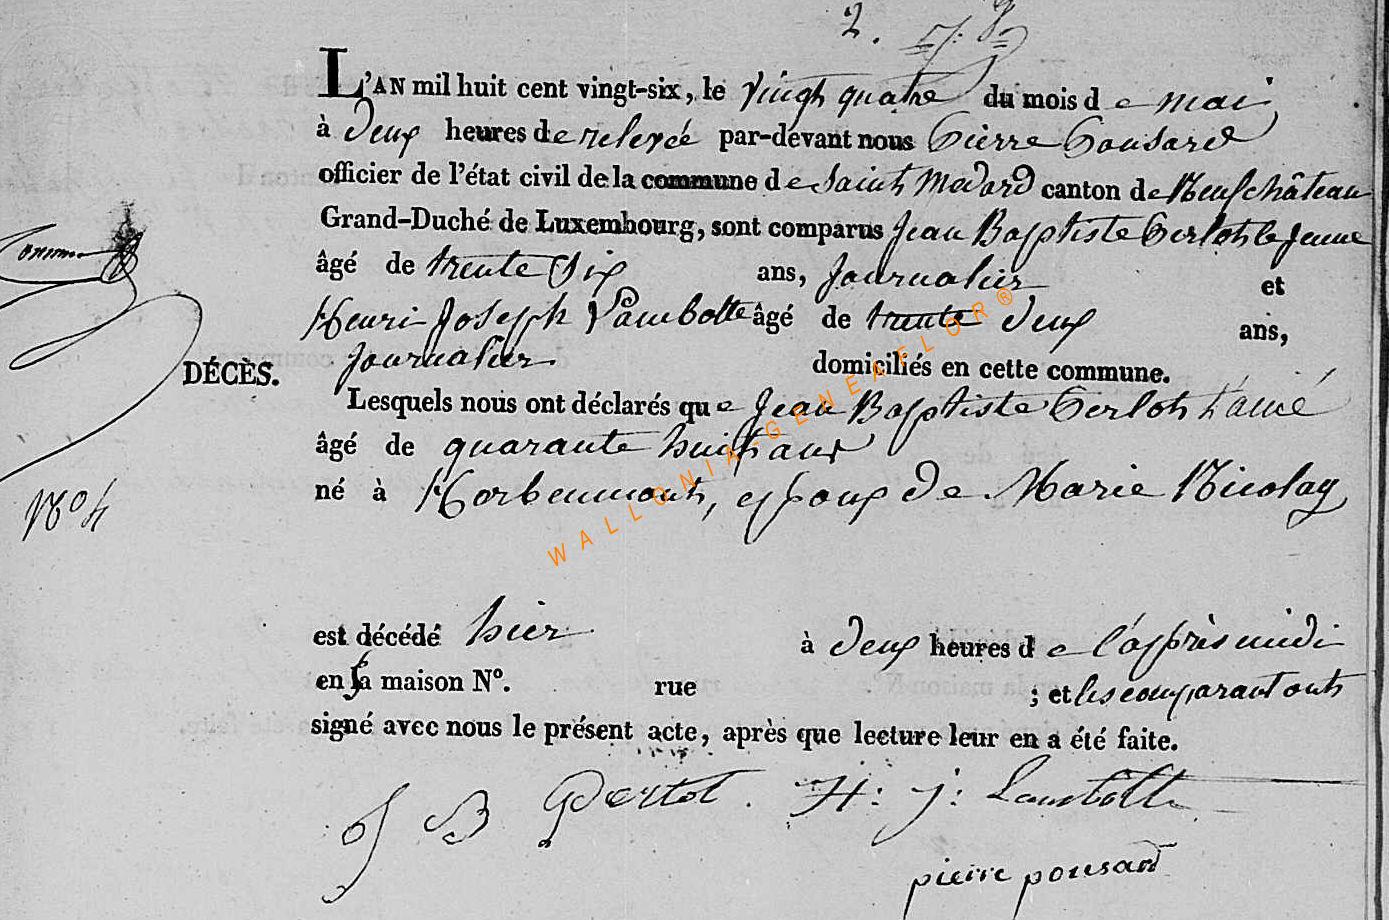 2.
L'AN mil huit cent vingt-six, le vingt quatre du mois de mai
à deux heures de relevée par-devant nous Pierre Pousard
officier de l'état civil de la commune de Saint Medard canton de Neufchâteau
Grand-Duché de Luxembourg, sont comparus Jean Baptiste Perlot le jeune
âgé de trente six ans, journalier et
Henri Joseph Lambotte âgé de trente deux ans,
journalier domiciliés en cette commune.
DÉCÈS.
Lesquels nous ont déclarés que Jean Baptiste Perlot l'aîné
âgé de quarante huit ans
né à Herbeumont, epoux de Marie Nicolay
est décédé hier à deux heures de l'après midi
en sa maison N°. rue ; et les comparant ont
signé avec nous le présent acte, après que lecture leur en a été faite.
J B Pertot. H: j: Lambotte
pierre pousard
WALLONIA-GENEAFLOR®